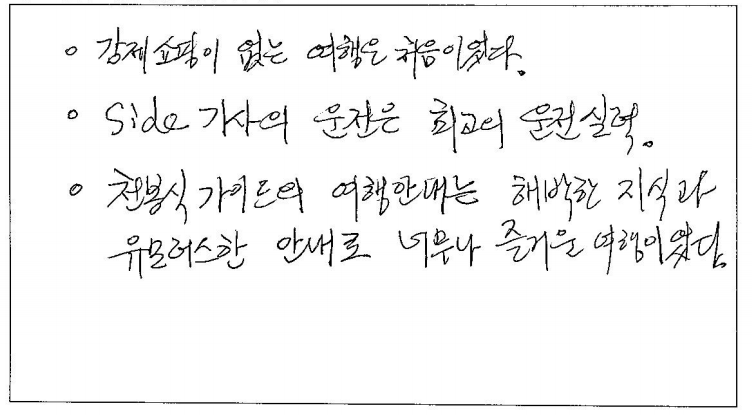 ◦ 강제쇼핑이 없는 여행은 처음이었다.
◦ Side 기사의 운전은 최고의 운전실력.
◦ 천봉식 가이드의 여행안내는 해박한 지식과
유모러스한 안내로 너무나 즐거운 여행이었다.